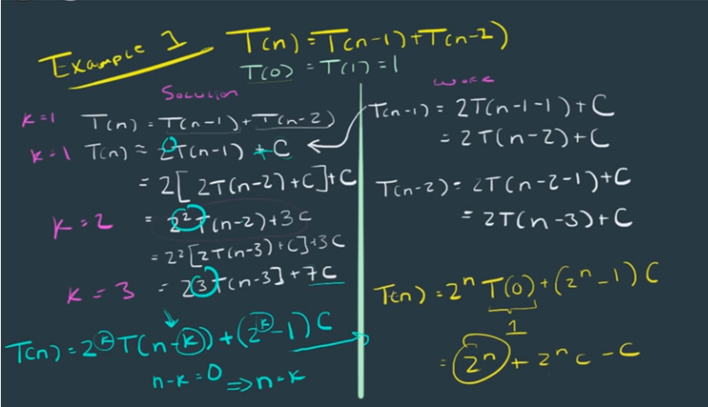 Example 1
T(n) = T(n-1) + T(n-2)
T(0) = T(1) = 1
Solution
K=1 T(n) = T(n-1) + T(n-2)
K=1 T(n) ≈ 2T(n-1) + C
= 2[2T(n-2)+C]+C
K=2 = 2²T(n-2)+3C
= 2²[2T(n-3)+C]+3C
K=3 = 2³T(n-3]+7C
T(n) = 2^K T(n-K) + (2^K-1)C
n-K=0 ⇒ n=K
work
T(n-1) = 2T(n-1-1)+C
= 2T(n-2)+C
T(n-2) = 2T(n-2-1)+C
= 2T(n-3)+C
T(n) = 2ⁿ T(0) + (2ⁿ-1)C
1
= 2ⁿ + 2ⁿC - C